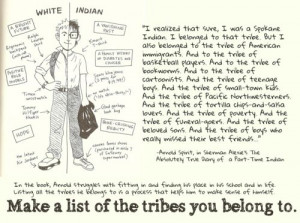 WHITE
INDIAN
A BRIGHT
FUTURE
POSITIVE
ROLE
MODELS
HOPE
A VANISHING
PAST
A FAMILY HISTORY
OF DIABETES AND
CANCER
BONE-CRUSHING
REALITY
"I realized that sure, I was a Spokane
Indian. I belonged to that tribe. But I
also belonged to the tribe of American
immigrants. And to the tribe of
basketball players. And to the tribe of
bookworms. And to the tribe of
cartoonists. And to the tribe of teenage
boys. And the tribe of small-town kids.
And the tribe of Pacific Northwesterners.
And the tribe of tortilla chips-and-salsa
lovers. And the tribe of poverty. And the
tribe of funeral-goers. And the tribe of
beloved sons. And the tribe of boys who
really missed their best friends."
-Arnold Spirit, in Sherman Alexie's The
Absolutely True Diary of a Part-Time Indian
In the book, Arnold struggles with fitting in and finding his place in his school and in life.
Listing all the tribes he belongs to is a process that helps him to make sense of himself.
Make a list of the tribes you belong to.